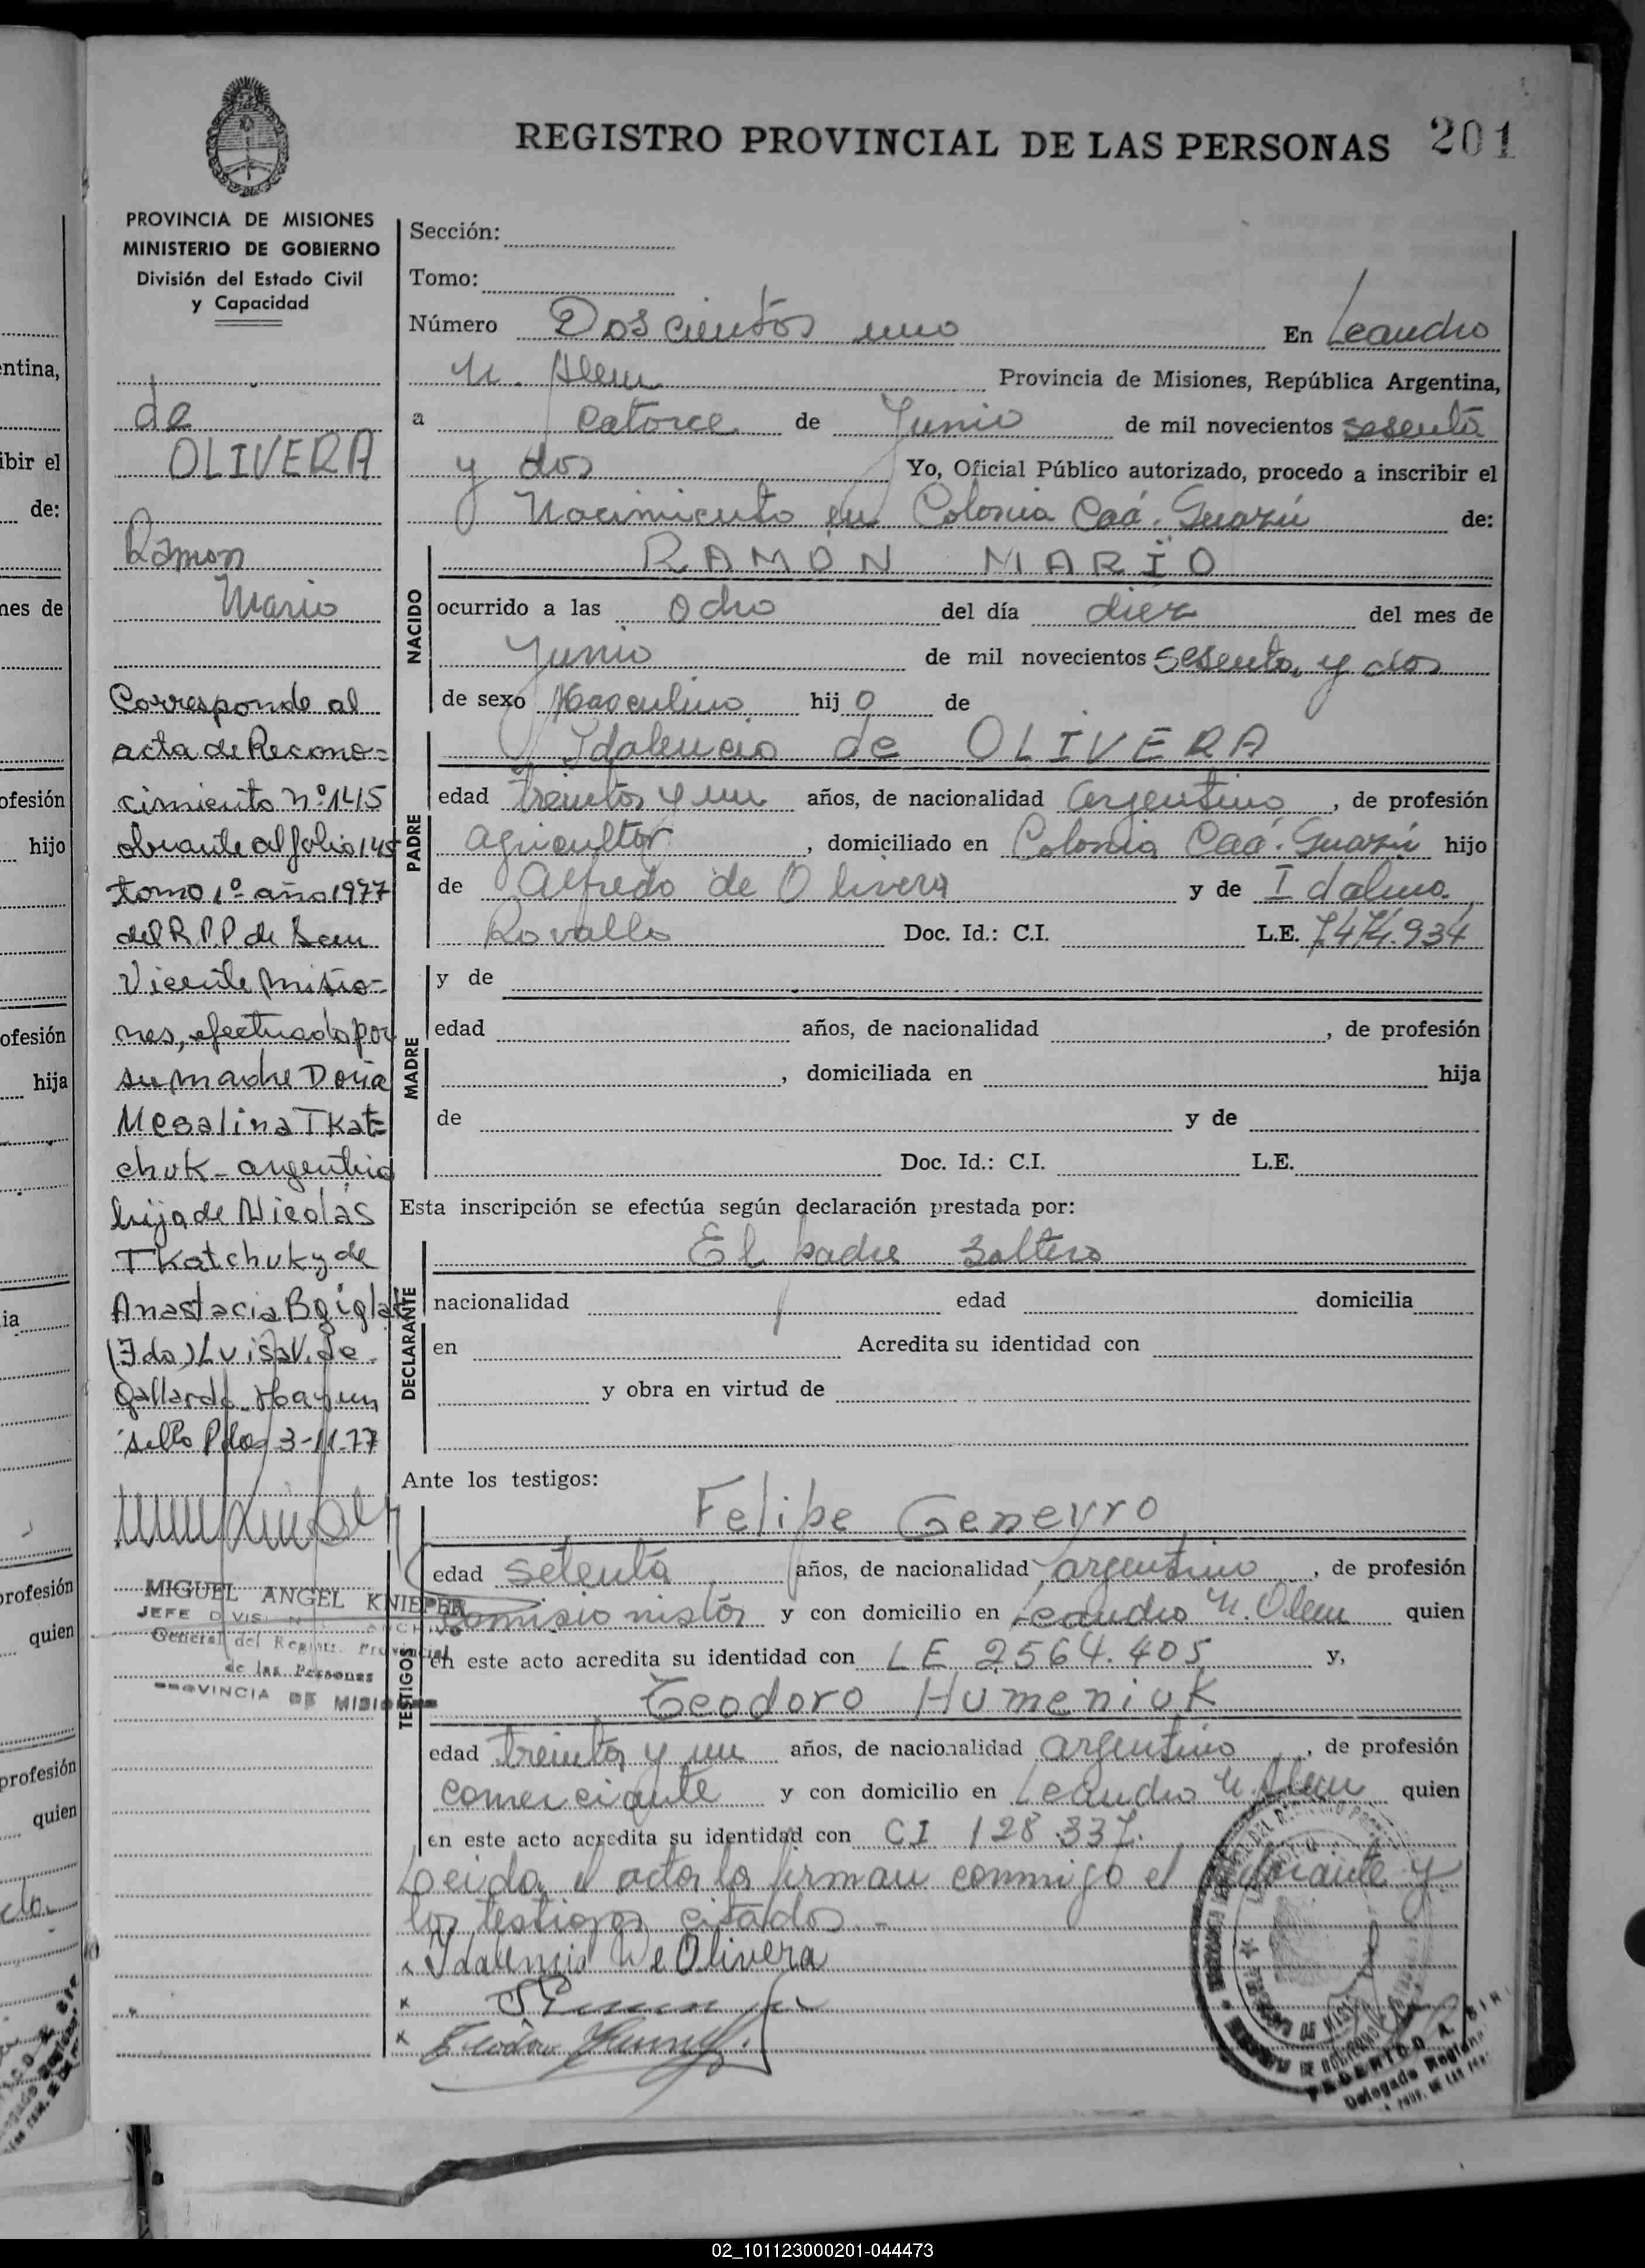 REGISTRO PROVINCIAL DE LAS PERSONAS 201
PROVINCIA DE MISIONES
MINISTERIO DE GOBIERNO
División del Estado Civil
y Capacidad
de
OLIVERA
Ramon
Mario
Corresponde al
acta de Recono=
cimiento nº 145
obrante al folio 145
tomo 1º año 1977
del R.P.P de San
Vicente Misio-
nes, efectuado por
su madre Doria
Mesalina Tkat=
chuk - argentina
hija de Nicolás
Tkatchuk y de
Anastacia
(Fdo) Luisa V. de
Gallardo. Hay un
sello Pdas 3-11-77
MIGUEL ANGEL KNIEPER
JEFE DIVISION ARCHIVO
General del Registro Provincial
de las Personas
PROVINCIA DE MISIONES
Sección:
Tomo:
Número Doscientos uno En Leandro
N. Alem Provincia de Misiones, República Argentina,
a catorce de Junio de mil novecientos sesenta
y dos Yo, Oficial Público autorizado, procedo a inscribir el
Nacimiento en Colonia Caá. Guazú de:
NACIDO
RAMÓN MARIO
ocurrido a las ocho del día diez del mes de
Junio de mil novecientos sesenta y dos
de sexo Masculino hijo de
PADRE
Idalencio de OLIVERA
edad treinta y un años, de nacionalidad argentino, de profesión
agricultor, domiciliado en Colonia Caá. Guazú hijo
de Alfredo de Olivera y de Idalina
Rovallo Doc. Id.: C.I. L.E. 7.474.934
MADRE
y de
edad años, de nacionalidad , de profesión
, domiciliada en hija
de y de
Doc. Id.: C.I. L.E.
Esta inscripción se efectúa según declaración prestada por:
DECLARANTE
El padre soltero
nacionalidad edad domicilia
en Acredita su identidad con
y obra en virtud de
Ante los testigos:
TESTIGOS
Felipe Geneyro
edad setenta años, de nacionalidad argentino, de profesión
comisionista y con domicilio en Leandro N. Alem quien
en este acto acredita su identidad con LE 2564.405 y,
Teodoro Humeniuk
edad treinta y un años, de nacionalidad argentino, de profesión
comerciante y con domicilio en Leandro N. Alem quien
en este acto acredita su identidad con CI 128.337.
Leida el acta la firman conmigo el y
los testigos citados.-
x Idalencio De Olivera
x
x Teodoro
FEDERICO A.
Delegado
02_101123000201-044473